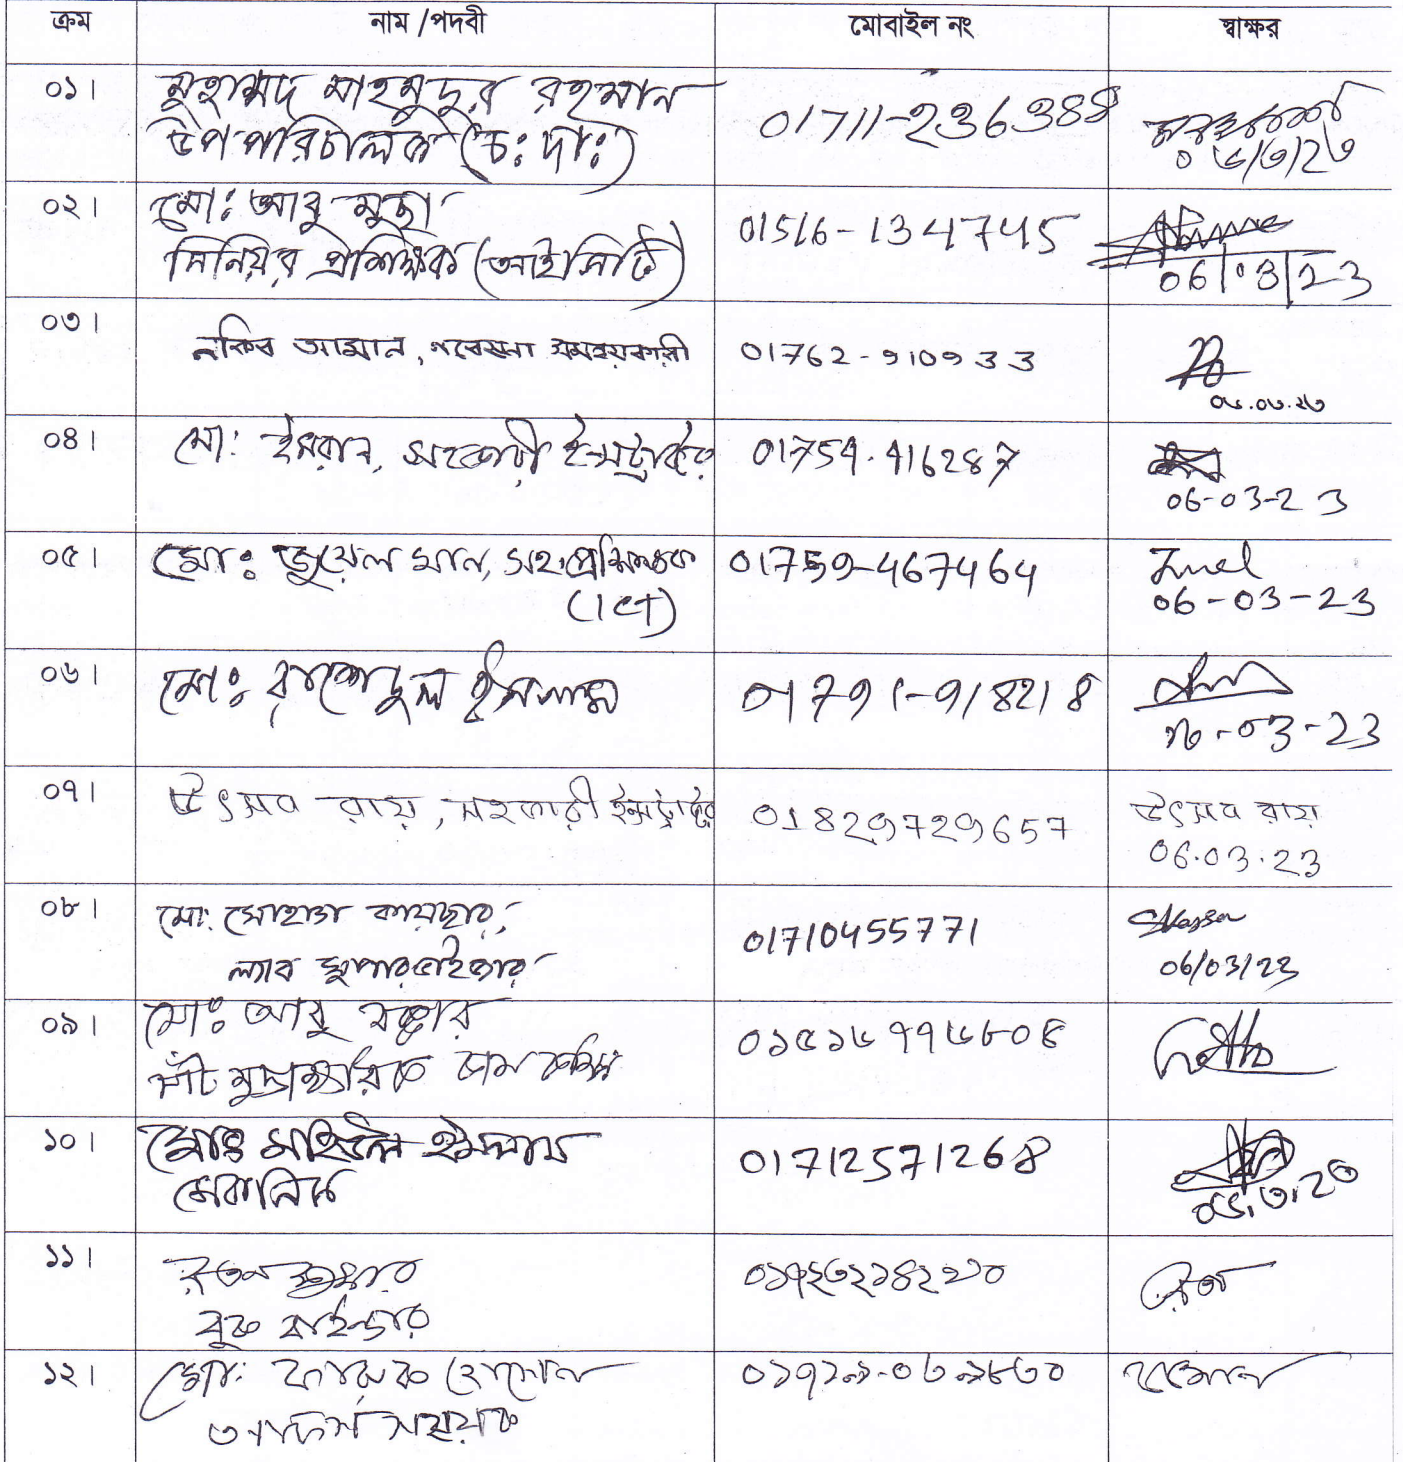 ক্রম নাম /পদবী মোবাইল নং স্বাক্ষর
০১। মুহাম্মদ মাহমুদুর রহমান
উপপরিচালক (চ:দা:) 01711-236388
০৬/৩/২৩
০২। মো: আবু মুছা
সিনিয়র প্রশিক্ষক (আইসিটি) 01516-134745
06/03/23
০৩। নকিব আমান, গবেষনা সমন্বয়কারী 01762-910933
০৬.০৩.২৩
০৪। মো: ইমরান, সহকারী ইন্সট্রাক্টর 01754-416287
06-03-23
০৫। মো: জুয়েল খান, সহ:প্রশিক্ষক 01759-467464 Juel
(ICT) 06-03-23
০৬। মো: রাশেদুল ইসলাম 01791-918218
06-03-23
০৭। উৎসব রায়, সহকারী ইন্সট্রাক্টর 01829729657 উৎসব রায়
06.03.23
০৮। মো: সোহাগ কায়ছার,
ল্যাব সুপারভাইজার 01710455771
06/03/23
০৯। মো: আবু বক্কার
সাঁট মুদ্রাক্ষরিক কাম
১০। ইসলাম
মেকানিক 01712571268
১১। রতন
বুক বাইন্ডার
১২। মো: ফারুক হোসেন
অফিস সহায়ক